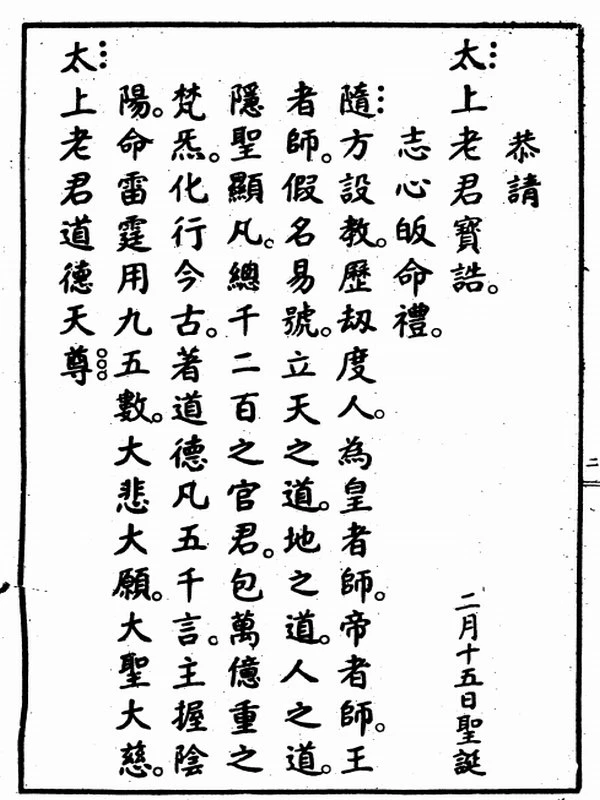 恭請
太上老君寶誥。 二月十五日聖誕
志心皈命禮。
隨方設教。歷劫度人。為皇者師。帝者師。王
者師。假名易號。立天之道。地之道。人之道。
隱聖顯凡。總千二百之官君。包萬億重之
梵炁。化行今古。著道德凡五千言。主握陰
陽。命雷霆用九五數。大悲大願。大聖大慈。
太上老君道德天尊
二